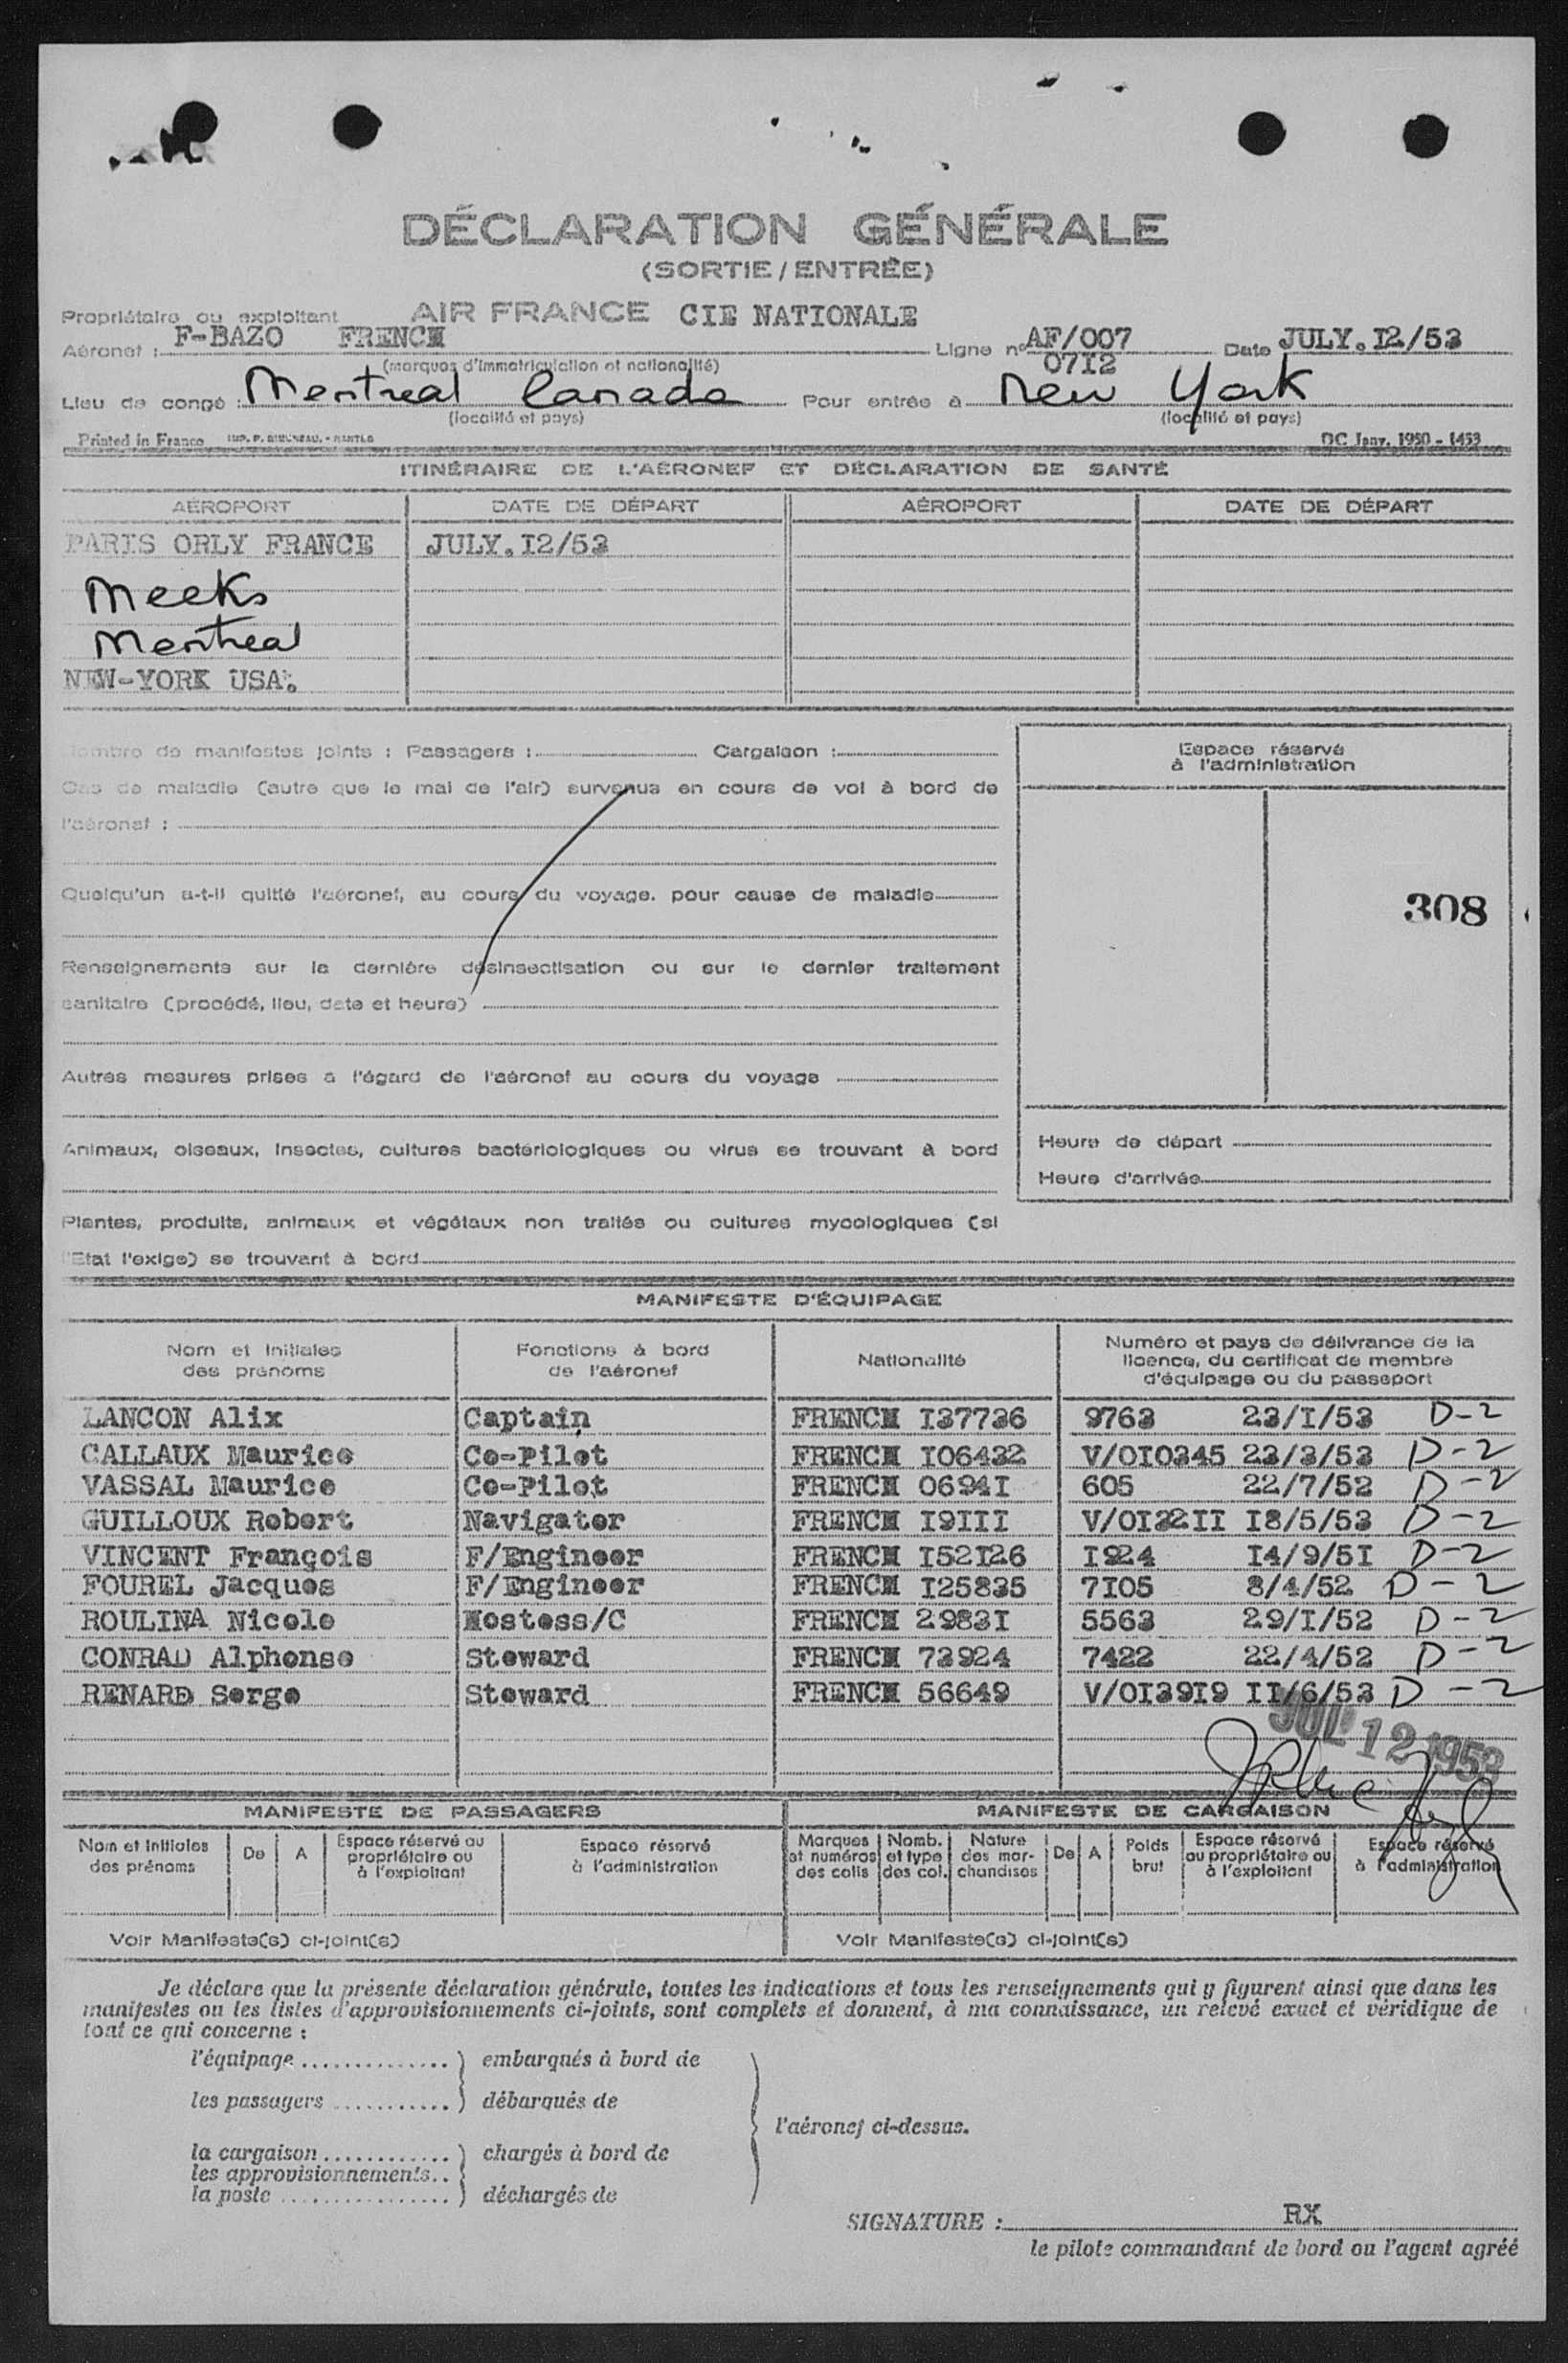 DÉCLARATION GÉNÉRALE
(SORTIE / ENTRÉE)
Propriétaire ou exploitant AIR FRANCE CIE NATIONALE
Aéronef : F-BAZO FRENCH Ligne n° AF/007 Date JULY.I2/53
(marques d'immatriculation et nationalité) 07I2
Lieu de congé : Montreal Canada Pour entrée à New York
(localité et pays) (localité et pays)
Printed in France DC Janv. 1950 - 1453
ITINÉRAIRE DE L'AÉRONEF ET DÉCLARATION DE SANTÉ
AÉROPORT DATE DE DÉPART AÉROPORT DATE DE DÉPART
PARIS ORLY FRANCE JULY.I2/53
Meeks
Montreal
NEW-YORK USA.
Nombre de manifestes joints : Passagers : Cargaison :
Cas de maladie (autre que le mal de l'air) survenus en cours de vol à bord de
l'aéronef :
Quelqu'un a-t-il quitté l'aéronef, au cours du voyage. pour cause de maladie
Renseignements sur la dernière désinsectisation ou sur le dernier traitement
sanitaire (procédé, lieu, date et heure)
Autres mesures prises à l'égard de l'aéronef au cours du voyage
Animaux, oiseaux, insectes, cultures bactériologiques ou virus se trouvant à bord
Plantes, produits, animaux et végétaux non traités ou cultures mycologiques (si
l'Etat l'exige) se trouvant à bord
Espace réservé
à l'administration
308
Heure de départ
Heure d'arrivée
MANIFESTE D'ÉQUIPAGE
Nom et initiales des prénoms Fonctions à bord de l'aéronef Nationalité Numéro et pays de délivrance de la licence, du certificat de membre d'équipage ou du passeport
LANCON Alix Captain FRENCH I37736 9763 23/I/53 D-2
CALLAUX Maurice Co-Pilot FRENCH I06432 V/OI0345 23/3/53 D-2
VASSAL Maurice Co-Pilot FRENCH 0694I 605 22/7/52 D-2
GUILLOUX Robert Navigator FRENCH I9III V/OI32II I8/5/53 D-2
VINCENT François F/Engineer FRENCH I52I26 I924 I4/9/5I D-2
FOUREL Jacques F/Engineer FRENCH I25835 7I05 8/4/52 D-2
ROULINA Nicole Hostess/C FRENCH 2983I 5563 29/I/52 D-2
CONRAD Alphonse Steward FRENCH 73924 7422 22/4/52 D-2
RENARD Serge Steward FRENCH 56649 V/OI39I9 II/6/53 D-2
JUL 12 1953
MANIFESTE DE PASSAGERS MANIFESTE DE CARGAISON
Nom et initiales des prénoms De A Espace réservé au propriétaire ou à l'exploitant Espace réservé à l'administration Marques et numéros des colis Nomb. et type des col. Nature des marchandises De A Poids brut Espace réservé au propriétaire ou à l'exploitant Espace réservé à l'administration
Voir Manifeste(s) ci-joint(s) Voir Manifeste(s) ci-joint(s)
Je déclare que la présente déclaration générale, toutes les indications et tous les renseignements qui y figurent ainsi que dans les
manifestes ou les listes d'approvisionnements ci-joints, sont complets et donnent, à ma connaissance, un relevé exact et véridique de
tout ce qui concerne :
l'équipage .............. ) embarqués à bord de
les passagers ........... ) débarqués de
l'aéronef ci-dessus.
la cargaison ............ ) chargés à bord de
les approvisionnements..
la poste ................ ) déchargés de
SIGNATURE : RX
le pilote commandant de bord ou l'agent agréé